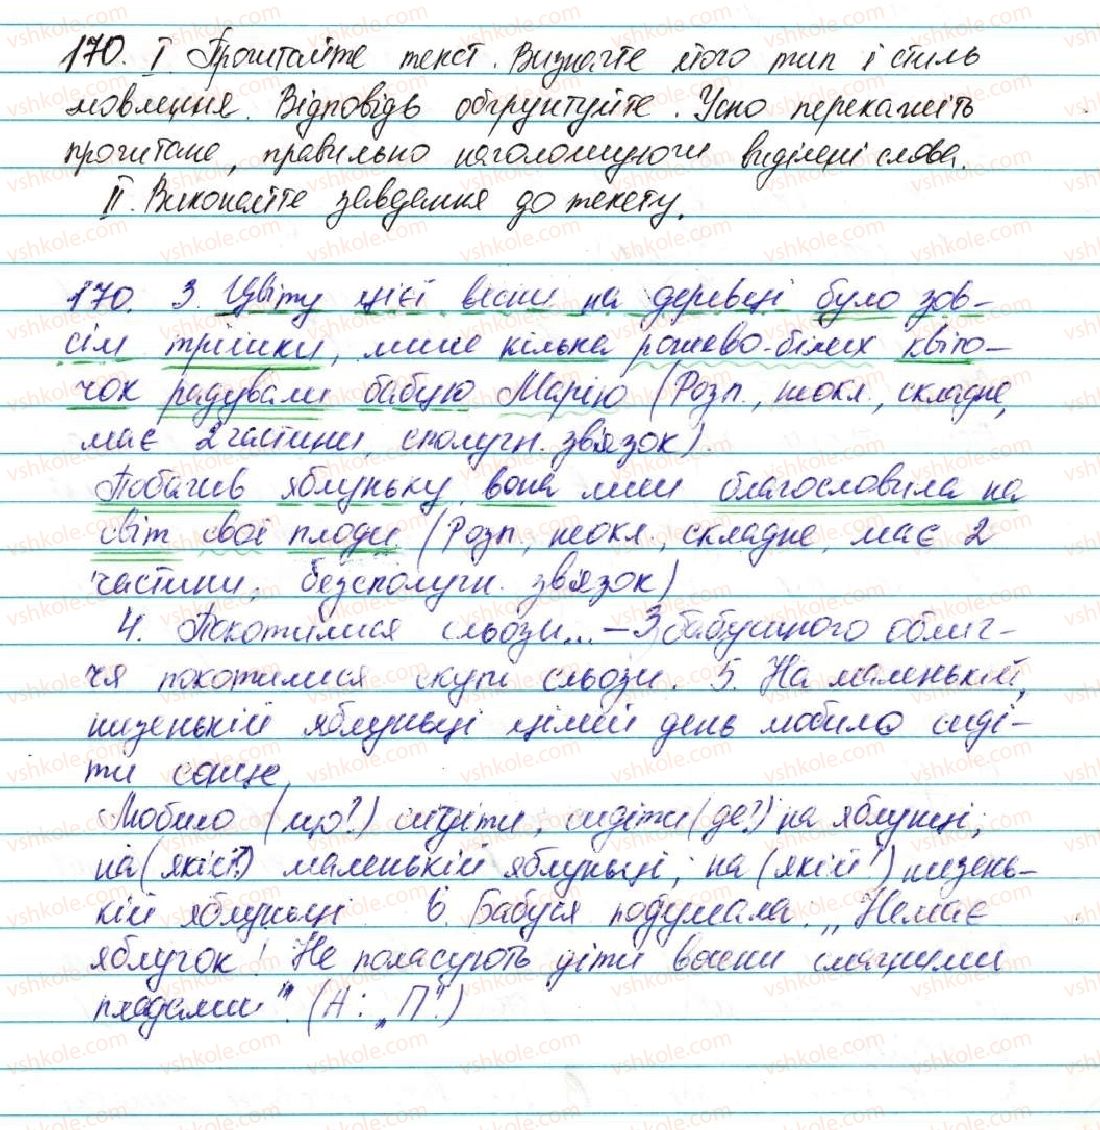 170. І. Прочитайте текст. Визначте його тип і стиль
мовлення. Відповідь обґрунтуйте. Усно перекажіть
прочитане, правильно наголошуючи виділені слова.
ІІ. Виконайте завдання до тексту.
170. 3. Цвіту цієї весни на деревці було зов-
сім трішки, лише кілька рожево-білих квіто-
чок радували бабцю Марію (Розп., неокл., складне,
має 2 частини, сполучн. зв'язок).
Побачив яблуньку, вона мии благословила на
світ свої плоди (Розп., неокл., складне, має 2
частини, безсполучн. зв'язок)
4. Покотилися сльози... – З бабусиного облич-
чя покотилися скупі сльози. 5. На маленькій,
низенькій яблуньці цілий день любило сиді-
ти сонце.
Любило (що?) сидіти; сидіти (де?) на яблунці;
на (якій?) маленькій яблуньці; на (якій?) низень-
кій яблуньці 6. Бабуся подумала: „Немає
яблучок! Не поласують діти восени смачними
плодами". (А: „П".)